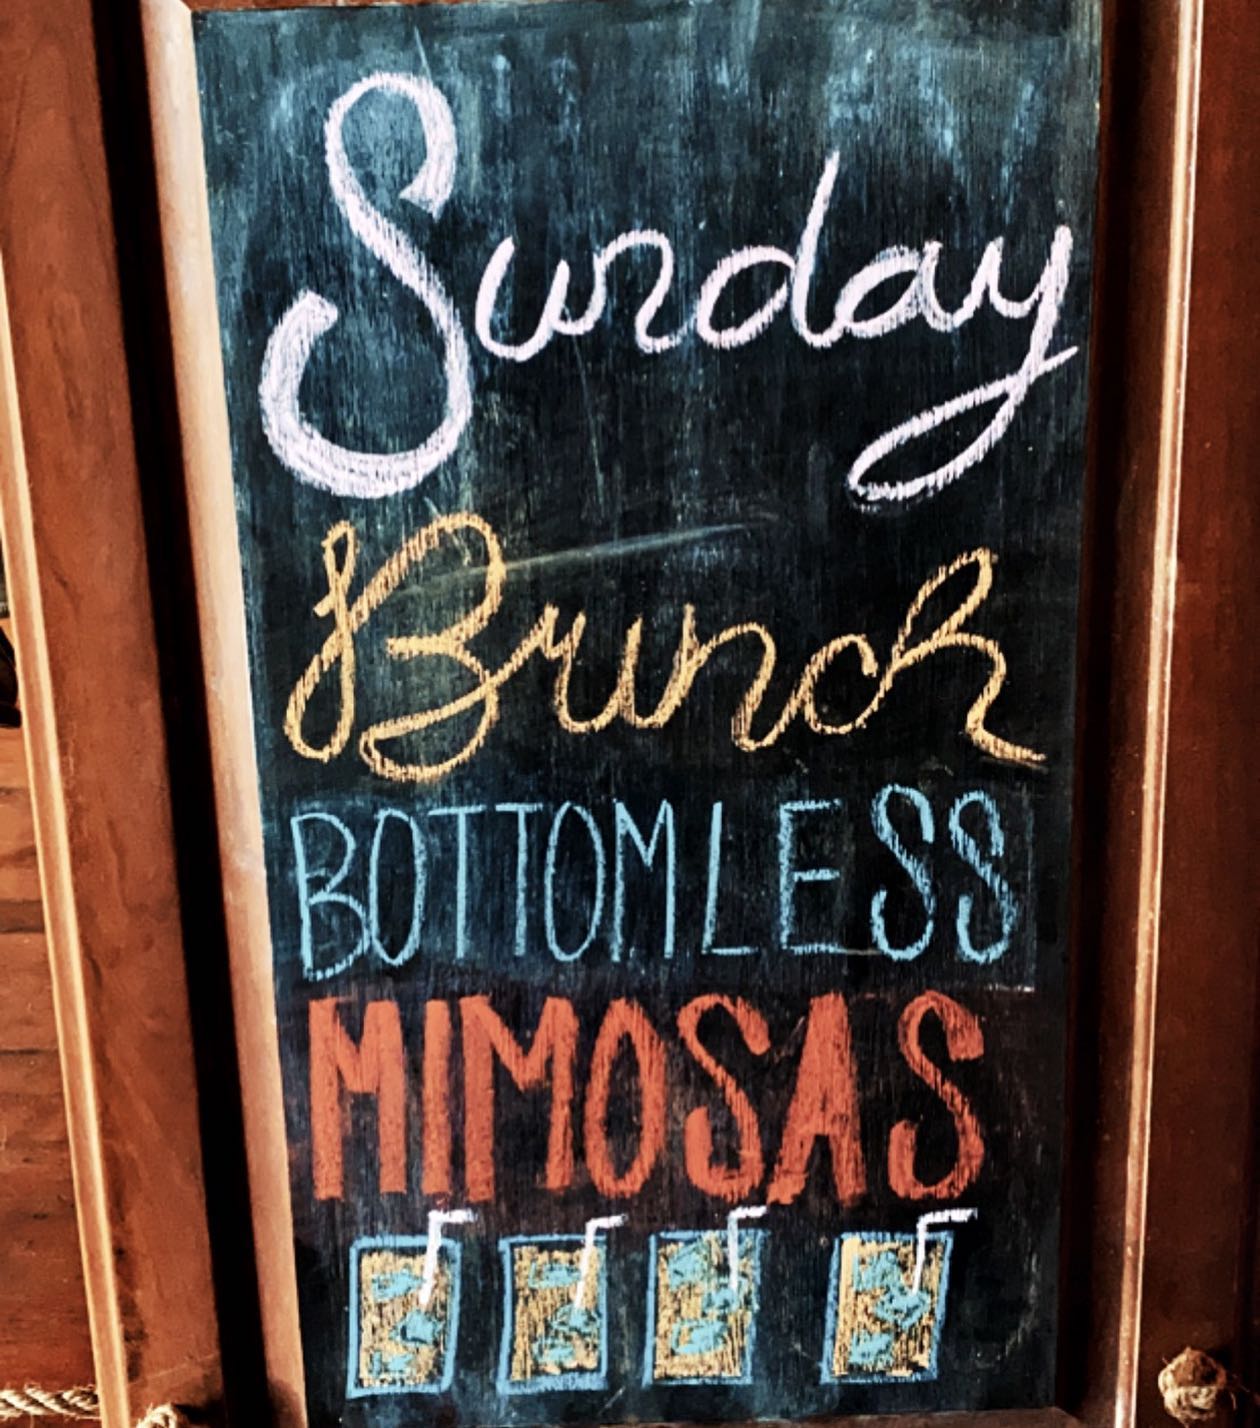 Sunday
Brunch
BOTTOMLESS
MIMOSAS